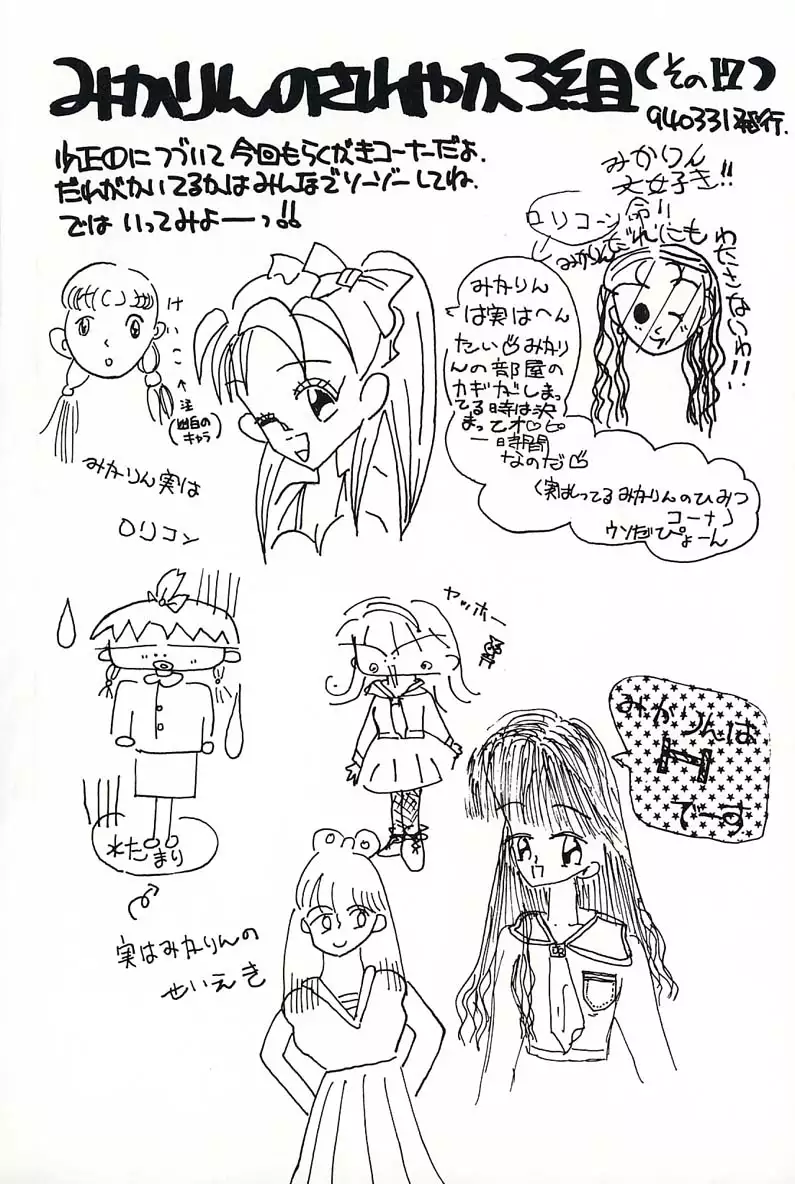 みかりんのさわやか3組(その17)
940331発行.
少正①につづいて今回もらくがきコーナーだよ.
だれがかいてるかはみんなでソーゾーしてね.
では いってみよーっ!!
みかりん
大好き!!
命!!
みかりんだれにも
わたさないわ!!
ロリコーン
けいこ
↑
注
(幽白の
キャラ)
みかりん
は実はへん
たい♡みかり
んの部屋の
カギがしまっ
てる時は決
まってオ♡ピー
一時間
なのだ♡
〈実はしってるみかりんのひみつ
コーナー〉
ウソだぴょーん
みかりん実は
ロリコン
ヤッホー
みかりんは
H
でーす
水たまり
実はみかりんの
せいえき